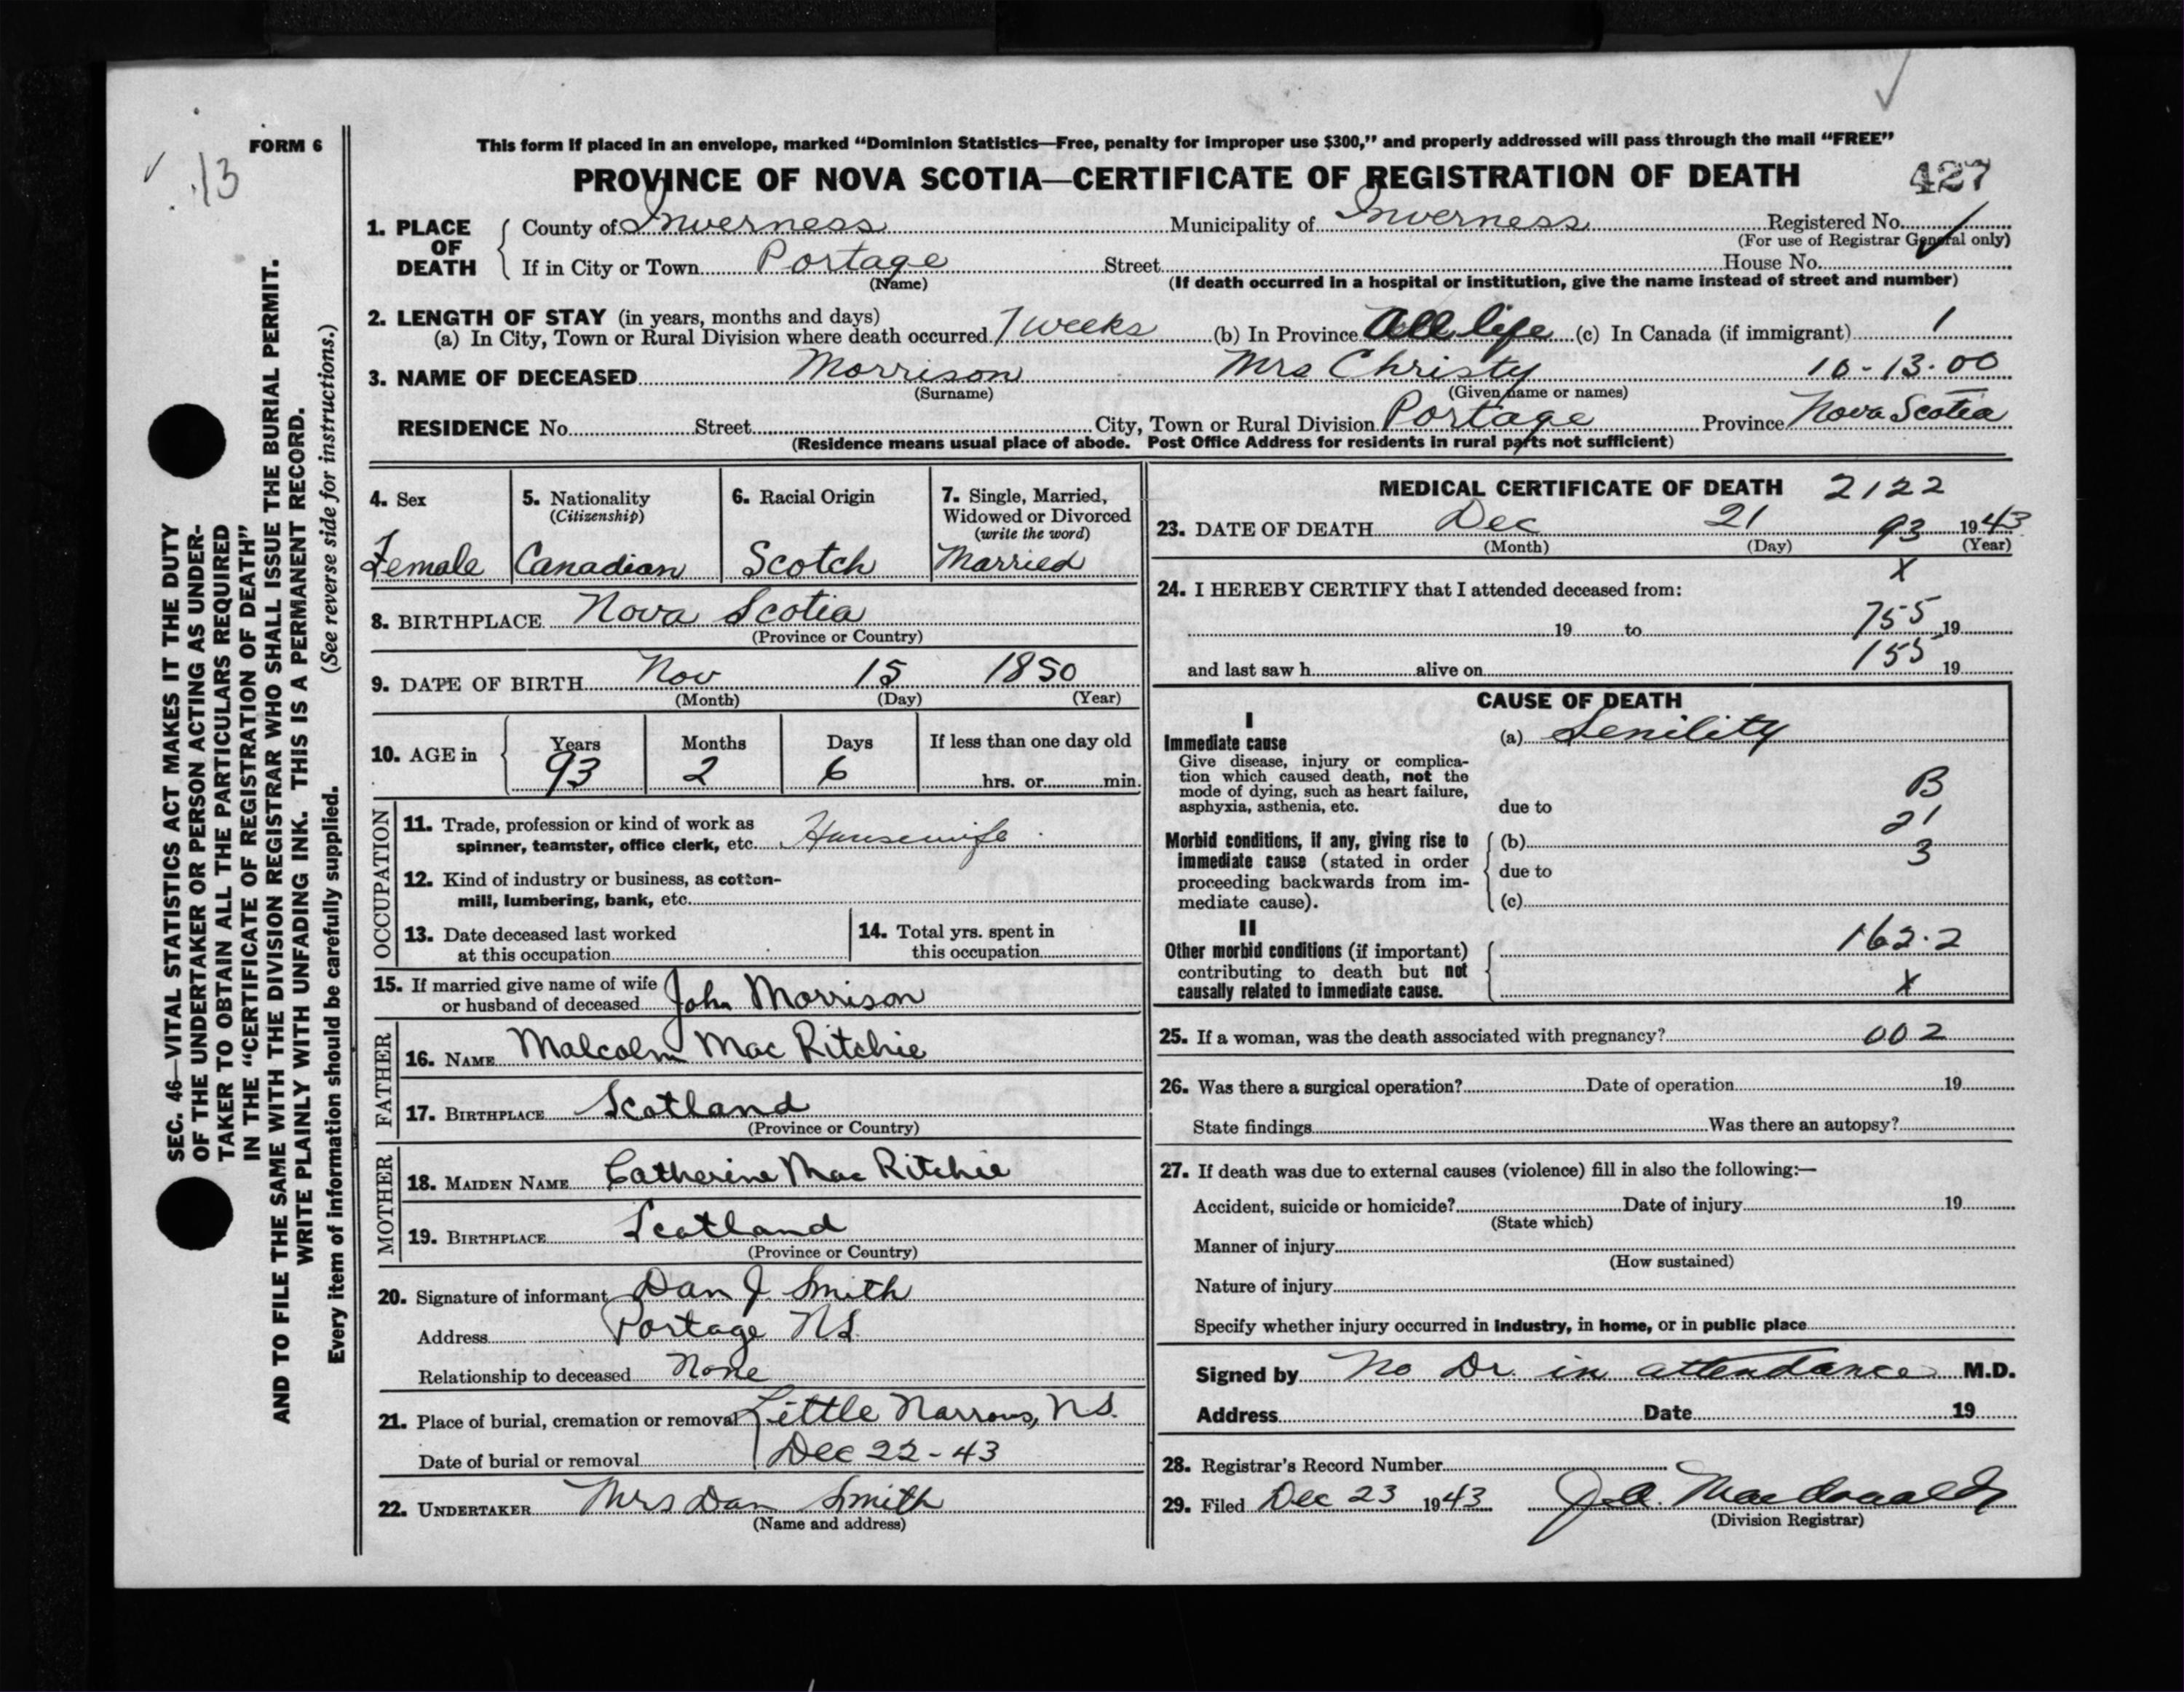 FORM 6
13
This form if placed in an envelope, marked “Dominion Statistics—Free, penalty for improper use $300,” and properly addressed will pass through the mail “FREE”
PROVINCE OF NOVA SCOTIA—CERTIFICATE OF REGISTRATION OF DEATH 427
1. PLACE OF DEATH County of Inverness Municipality of Inverness Registered No.
(For use of Registrar General only)
If in City or Town Portage Street House No.
(Name) (If death occurred in a hospital or institution, give the name instead of street and number)
2. LENGTH OF STAY (in years, months and days)
(a) In City, Town or Rural Division where death occurred 7 weeks (b) In Province All life (c) In Canada (if immigrant) 1
3. NAME OF DECEASED Morrison Mrs Christy 10-13-00
(Surname) (Given name or names)
RESIDENCE No. Street City, Town or Rural Division Portage Province Nova Scotia
(Residence means usual place of abode. Post Office Address for residents in rural parts not sufficient)
4. Sex
Female
5. Nationality
(Citizenship)
Canadian
6. Racial Origin
Scotch
7. Single, Married,
Widowed or Divorced
(write the word)
Married
8. BIRTHPLACE Nova Scotia
(Province or Country)
9. DATE OF BIRTH Nov 15 1850
(Month) (Day) (Year)
10. AGE in Years Months Days If less than one day old
93 2 6 hrs. or min.
OCCUPATION
11. Trade, profession or kind of work as
spinner, teamster, office clerk, etc. Housewife
12. Kind of industry or business, as cotton-
mill, lumbering, bank, etc.
13. Date deceased last worked
at this occupation
14. Total yrs. spent in
this occupation
15. If married give name of wife
or husband of deceased John Morrison
FATHER
16. NAME Malcolm Mac Ritchie
17. BIRTHPLACE Scotland
(Province or Country)
MOTHER
18. MAIDEN NAME Catherine Mac Ritchie
19. BIRTHPLACE Scotland
(Province or Country)
20. Signature of informant Dan J. Smith
Address Portage N.S.
Relationship to deceased None
21. Place of burial, cremation or removal Little Narrows, N.S.
Date of burial or removal Dec 22-43
22. UNDERTAKER Mrs Dan Smith
(Name and address)
MEDICAL CERTIFICATE OF DEATH 2122
23. DATE OF DEATH Dec 21 93 1943
(Month) (Day) (Year)
X
24. I HEREBY CERTIFY that I attended deceased from:
19 to 755 19
and last saw h alive on 155 19
CAUSE OF DEATH
I
Immediate cause (a) Senility
Give disease, injury or complica-
tion which caused death, not the
mode of dying, such as heart failure,
asphyxia, asthenia, etc. due to
B
21
3
Morbid conditions, if any, giving rise to (b)
immediate cause (stated in order due to
proceeding backwards from im-
mediate cause). (c)
II
Other morbid conditions (if important) 162.2
contributing to death but not
causally related to immediate cause. X
25. If a woman, was the death associated with pregnancy? 002
26. Was there a surgical operation? Date of operation 19
State findings Was there an autopsy?
27. If death was due to external causes (violence) fill in also the following:—
Accident, suicide or homicide? Date of injury 19
(State which)
Manner of injury
(How sustained)
Nature of injury
Specify whether injury occurred in industry, in home, or in public place
Signed by No Dr. in attendance M.D.
Address Date 19
28. Registrar's Record Number
29. Filed Dec 23 1943 J.A. MacDonald
(Division Registrar)
SEC. 46—VITAL STATISTICS ACT MAKES IT THE DUTY
OF THE UNDERTAKER OR PERSON ACTING AS UNDER-
TAKER TO OBTAIN ALL THE PARTICULARS REQUIRED
IN THE “CERTIFICATE OF REGISTRATION OF DEATH”
AND TO FILE THE SAME WITH THE DIVISION REGISTRAR WHO SHALL ISSUE THE BURIAL PERMIT.
WRITE PLAINLY WITH UNFADING INK. THIS IS A PERMANENT RECORD.
Every item of information should be carefully supplied. (See reverse side for instructions.)